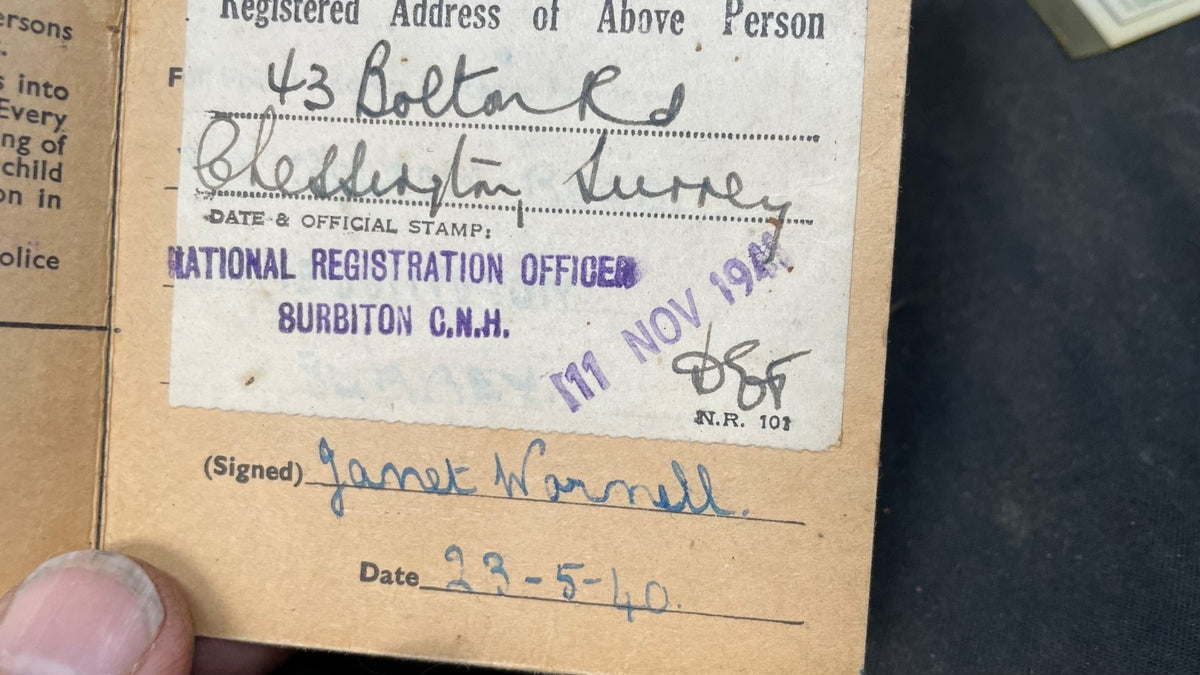 ersons
s into
Every
ng of
child
on in
olice
Registered Address of Above Person
F
43 Bolton Rd
Chessington, Surrey
DATE & OFFICIAL STAMP:
NATIONAL REGISTRATION OFFICER
SURBITON C.N.H.
11 NOV 194
N.R. 101
(Signed) Janet Wornell.
Date 23-5-40.